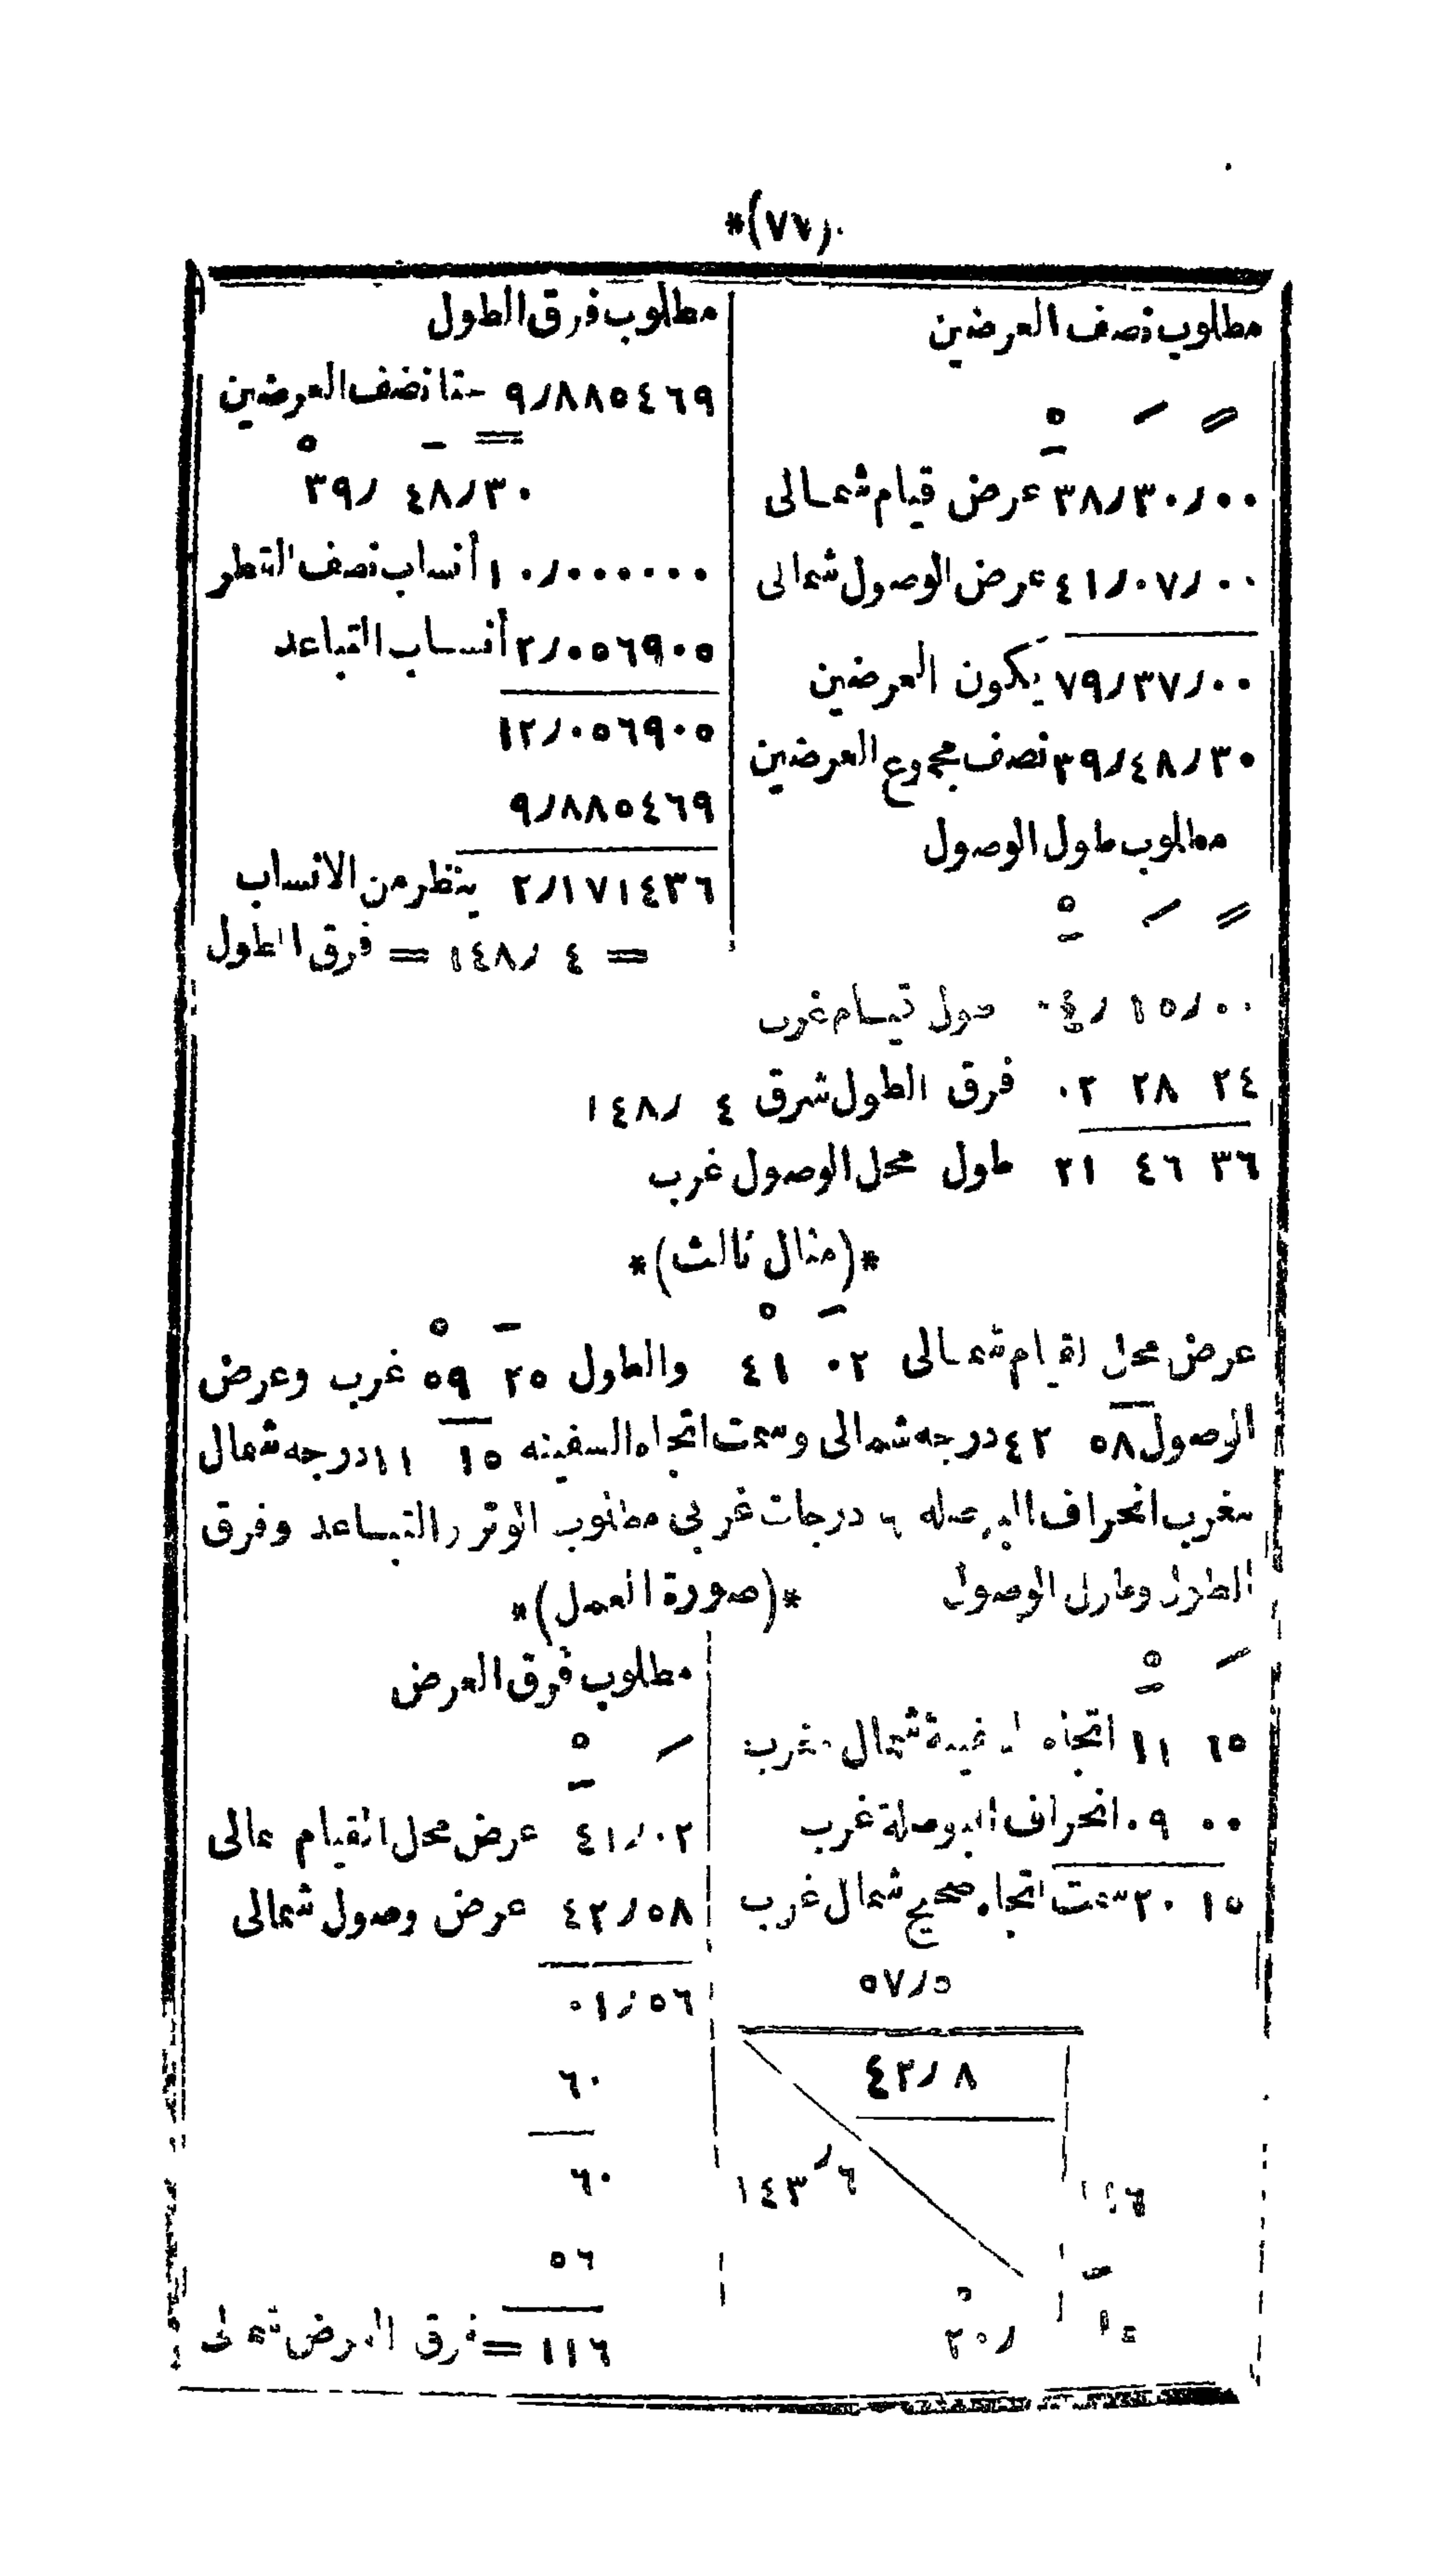 *(٧٧)*
مطلوب نصف العرضين
° ‒ =
٣٨/٣٠/٠٠ عرض قيام شمالى
٤١/٠٧/٠٠ عرض الوصول شمالى
٧٩/٣٧/٠٠ يكون العرضين
٣٩/٤٨/٣٠ نصف مجموع العرضين
مطلوب طول الوصول
° ‒ =
مطلوب فرق الطول
٩/٨٨٥٤٦٩ حتا نضف العرضين
° ‒ =
٣٩/ ٤٨/٣٠
١٠/٠٠٠٠٠٠ أنساب نصف القطر
٢/٠٥٦٩٠٥ أنساب التباعد
١٢/٠٥٦٩٠٥
٩/٨٨٥٤٦٩
٢/١٧١٤٣٦ ينظر من الانساب
= ١٤٨/ ٤ = فرق الطول
١٥/٠٠ قيام غرب
٠٢ ٢٨ ٢٤ فرق الطول شرق ١٤٨/ ٤
٢١ ٤٦ ٣٦ طول محل الوصول غرب
*(مثال ثالث)*
عرض محل القيام شمالى ٠٢ ٤١ والطول ٢٥ ٥٩ غرب وعرض
الوصول ٥٨ ٤٢ درجه شمالى وسمت اتجاه السفينه ١٥ ١١ درجه شمال
مغرب انحراف البوصله ٩ درجات غربى مطلوب الوتر والتباعد وفرق
الطول وطول الوصول
*(صورة العمل)*
١١ ١٥ اتجاه السفينة شمال مغرب
٠٩ ٠٠ انحراف البوصلة غرب
٢٠ ١٥ سمت اتجاه صحيح شمال غرب
٥٧/٥
٤٢/٨
١٤٣/٦
١١٦
٢٠/ ١٥
مطلوب فرق العرض
° ‒
٤١/٠٢ عرض محل القيام مالى
٤٢/٥٨ عرض وصول شمالى
٠١/٥٦
٦٠
٦٠
٥٦
١١٦ = فرق العرض شمالى